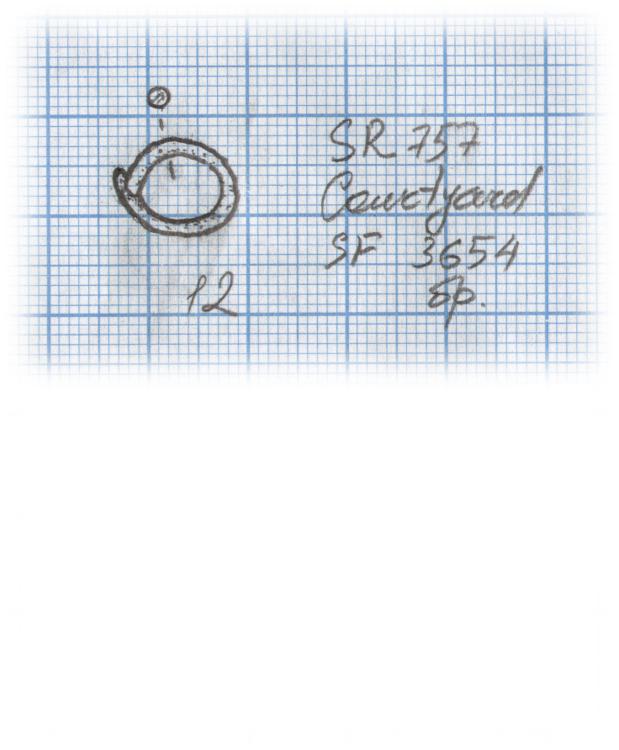 SR 757
Courtyard
SF 3654
бр.
12